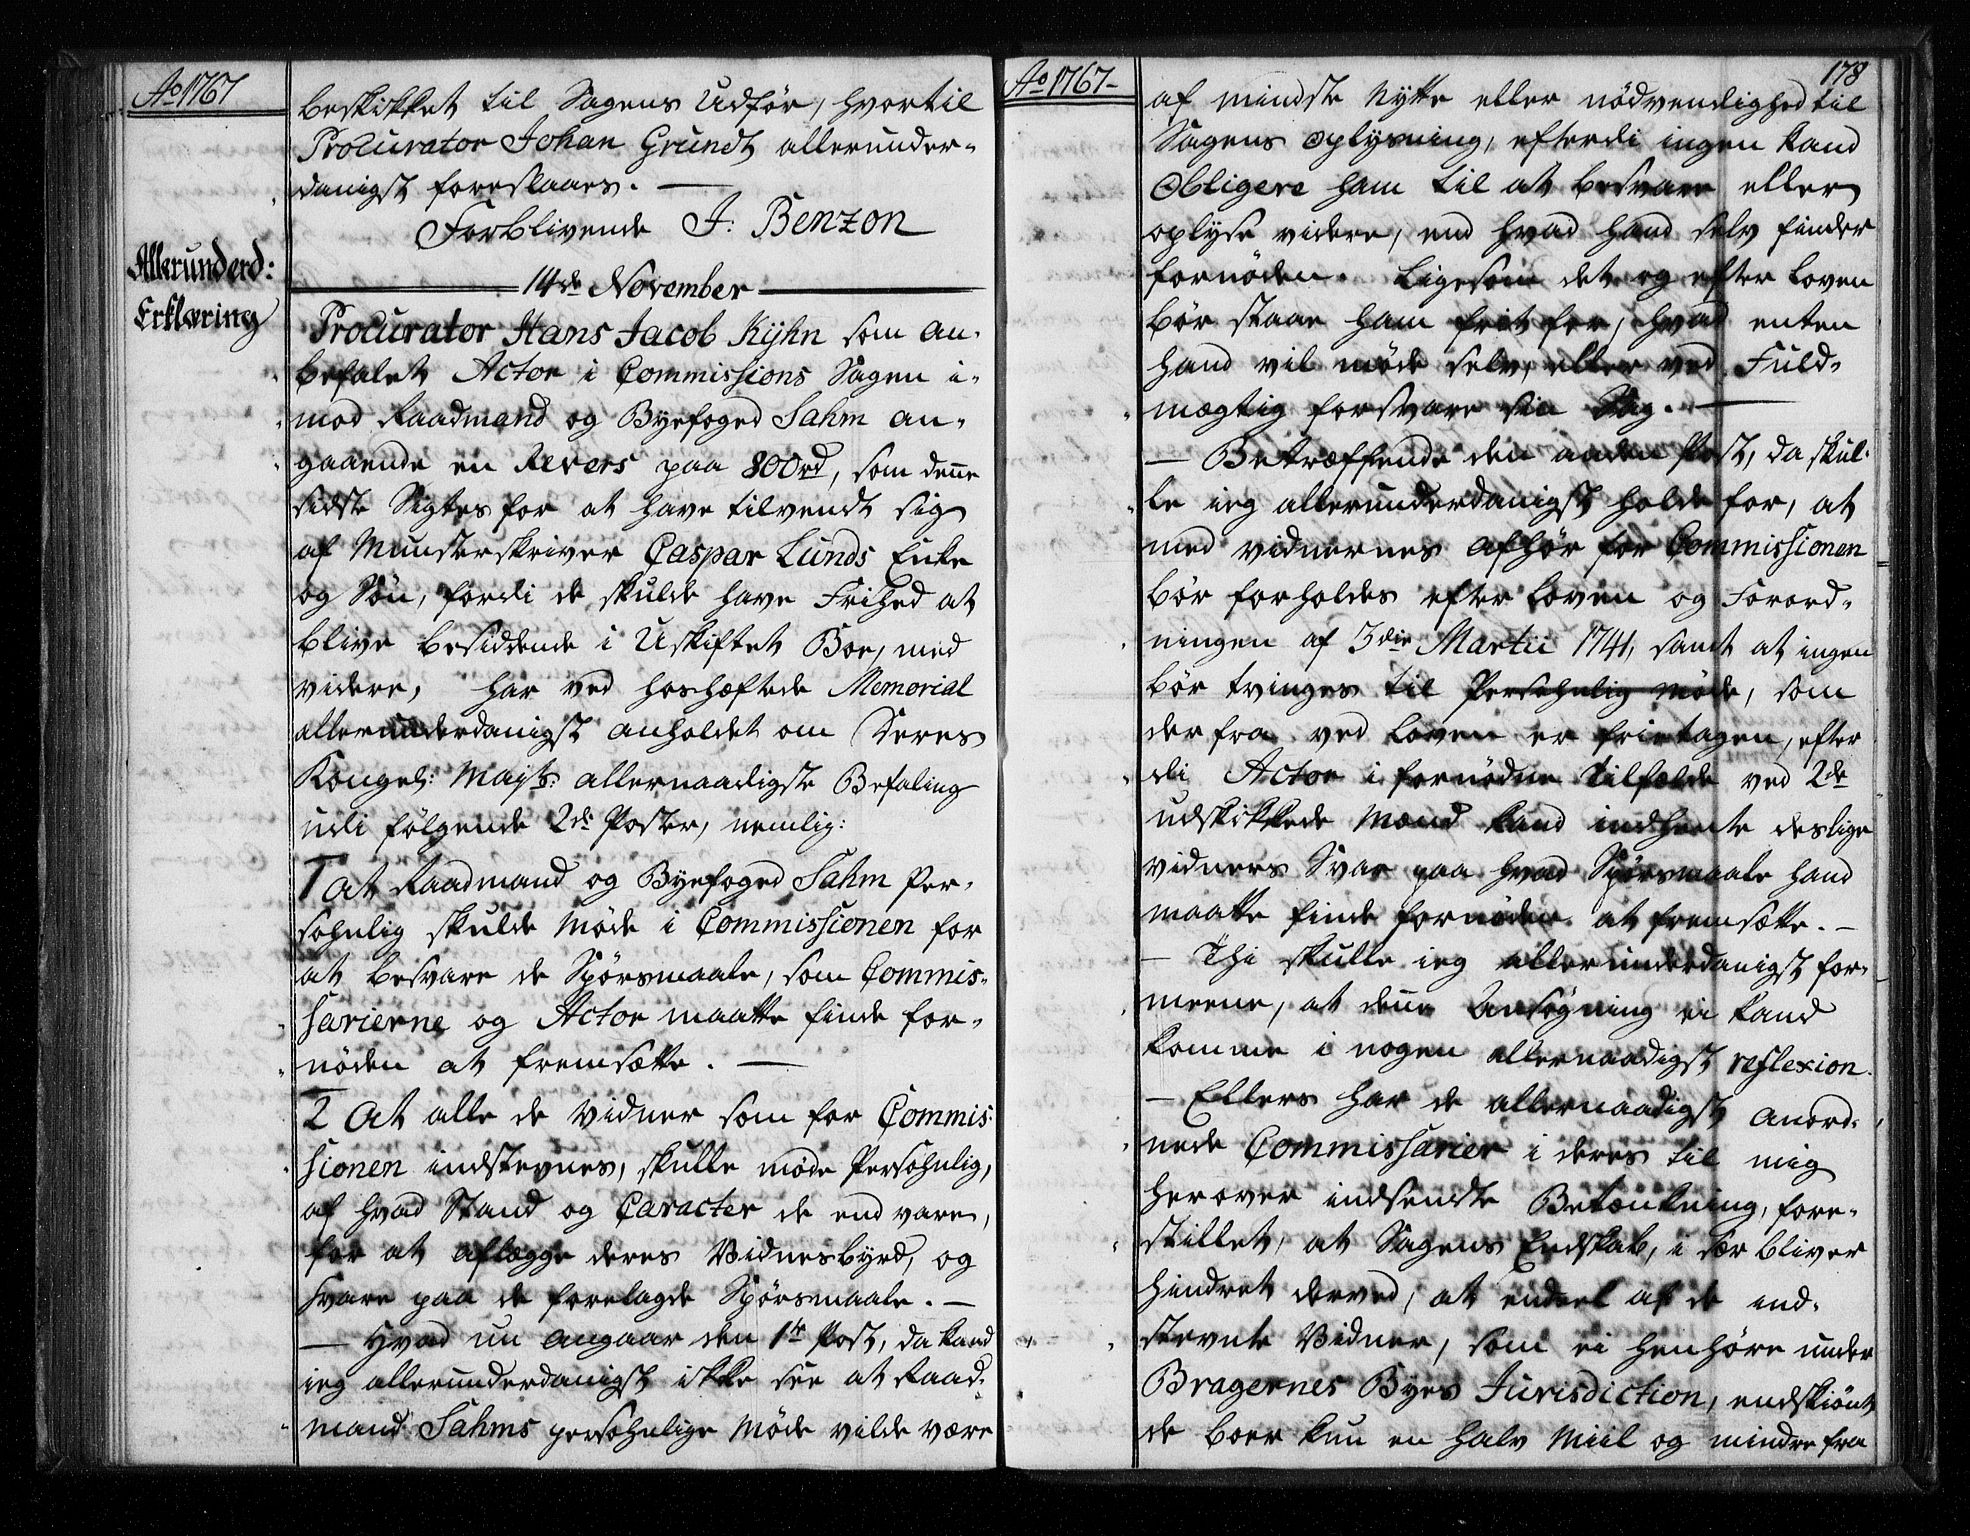 Ao 1767
beskikket til Sagens Udför, hvortil
Procurator Johan Grundt allerunder-
danigst foreslaaes. —
Forblivende J: Benzon
Allerunderd:
Erklæring
14de November
Procurator Hans Jacob Kyhn som an-
befalet Actor i Commissions Sagen i-
mod Raadmand og Byefoged Sahm an-
gaaende en Revers paa 800rd, som dene
sidste Sigtes for at have tilvendt sig
af Munsterskriver Caspar Lunds Enke
og Sön, fordi de skulde have Frihed at
blive besiddende i Uskiftet Boe, med
videre, har ved hoshæftede Memorial
allerunderdanigst anholdet om Deres
Kongel: Majts: allernaadigste Befaling
udi følgende 2de Poster, nemlig:
1 at Raadmand og Byefoged Sahm Per-
sohnlig skulde Møde i Commissionen for
at besvare de Spörsmaale, som Commis-
sarierne og Actor maatte finde for-
nöden at fremsætte. —
2 At alle de vidner som for Commis-
sionen indstevnes, skulle møde Persohnlig,
af hvad Stand og Caracter de end vare,
for at aflægge deres Vidnesbyrd, og
svare paa de forelagde Spörsmaale. —
— Hvad nu angaar den 1te Post, da kand
ieg allerunderdanigst ikke see at Raad-
mand Sahms persohnlige Møde vilde være
Ao 1767-
178
af mindste Nytte eller nödvendighed til
Sagens Oplysning, efterdi ingen kand
Obligere ham til at besvare eller
oplyse videre, end hvad hand selv finder
fornöden. Ligesom det og efter Loven
bör staae ham frit for, hvad enten
hand vil møde selv, eller ved Fuld-
mægtig forsvare sin Sag. —
— Betræffende den anden Post, da skul-
le ieg allerunderdanigst holde for, at
med vidnernes Afhör for Commissionen
bör forholdes efter Loven og Forord-
ningen af 3die Martii 1741, samt at ingen
bör tvinges til Persohnlig møde, som
derfra ved Loven er fritagen, efter
di Actor i fornödne tilfælde ved 2de
udskikkede Mænd kand indhente deslige
vidners Svar paa hvad Spörsmaale hand
maatte finde fornöden at fremsætte. —
— Thi skulle ieg allerunderdanigst for-
meene, at dene Ansögning ei kand
komme i nogen allernaadigst reflexion.
— Ellers har de allernaadigst anord-
nede Commissarier i deres til mig
herover indsendte Betænkning, fore-
stillet, at Sagens Endskab, i sær bliver
hindret derved, at endeel af de ind-
stevnte Vidner, som ei henhöre under
Bragernes Byes Jurisdiction, endskiönt
de boer kun en halv Miil og mindre fra